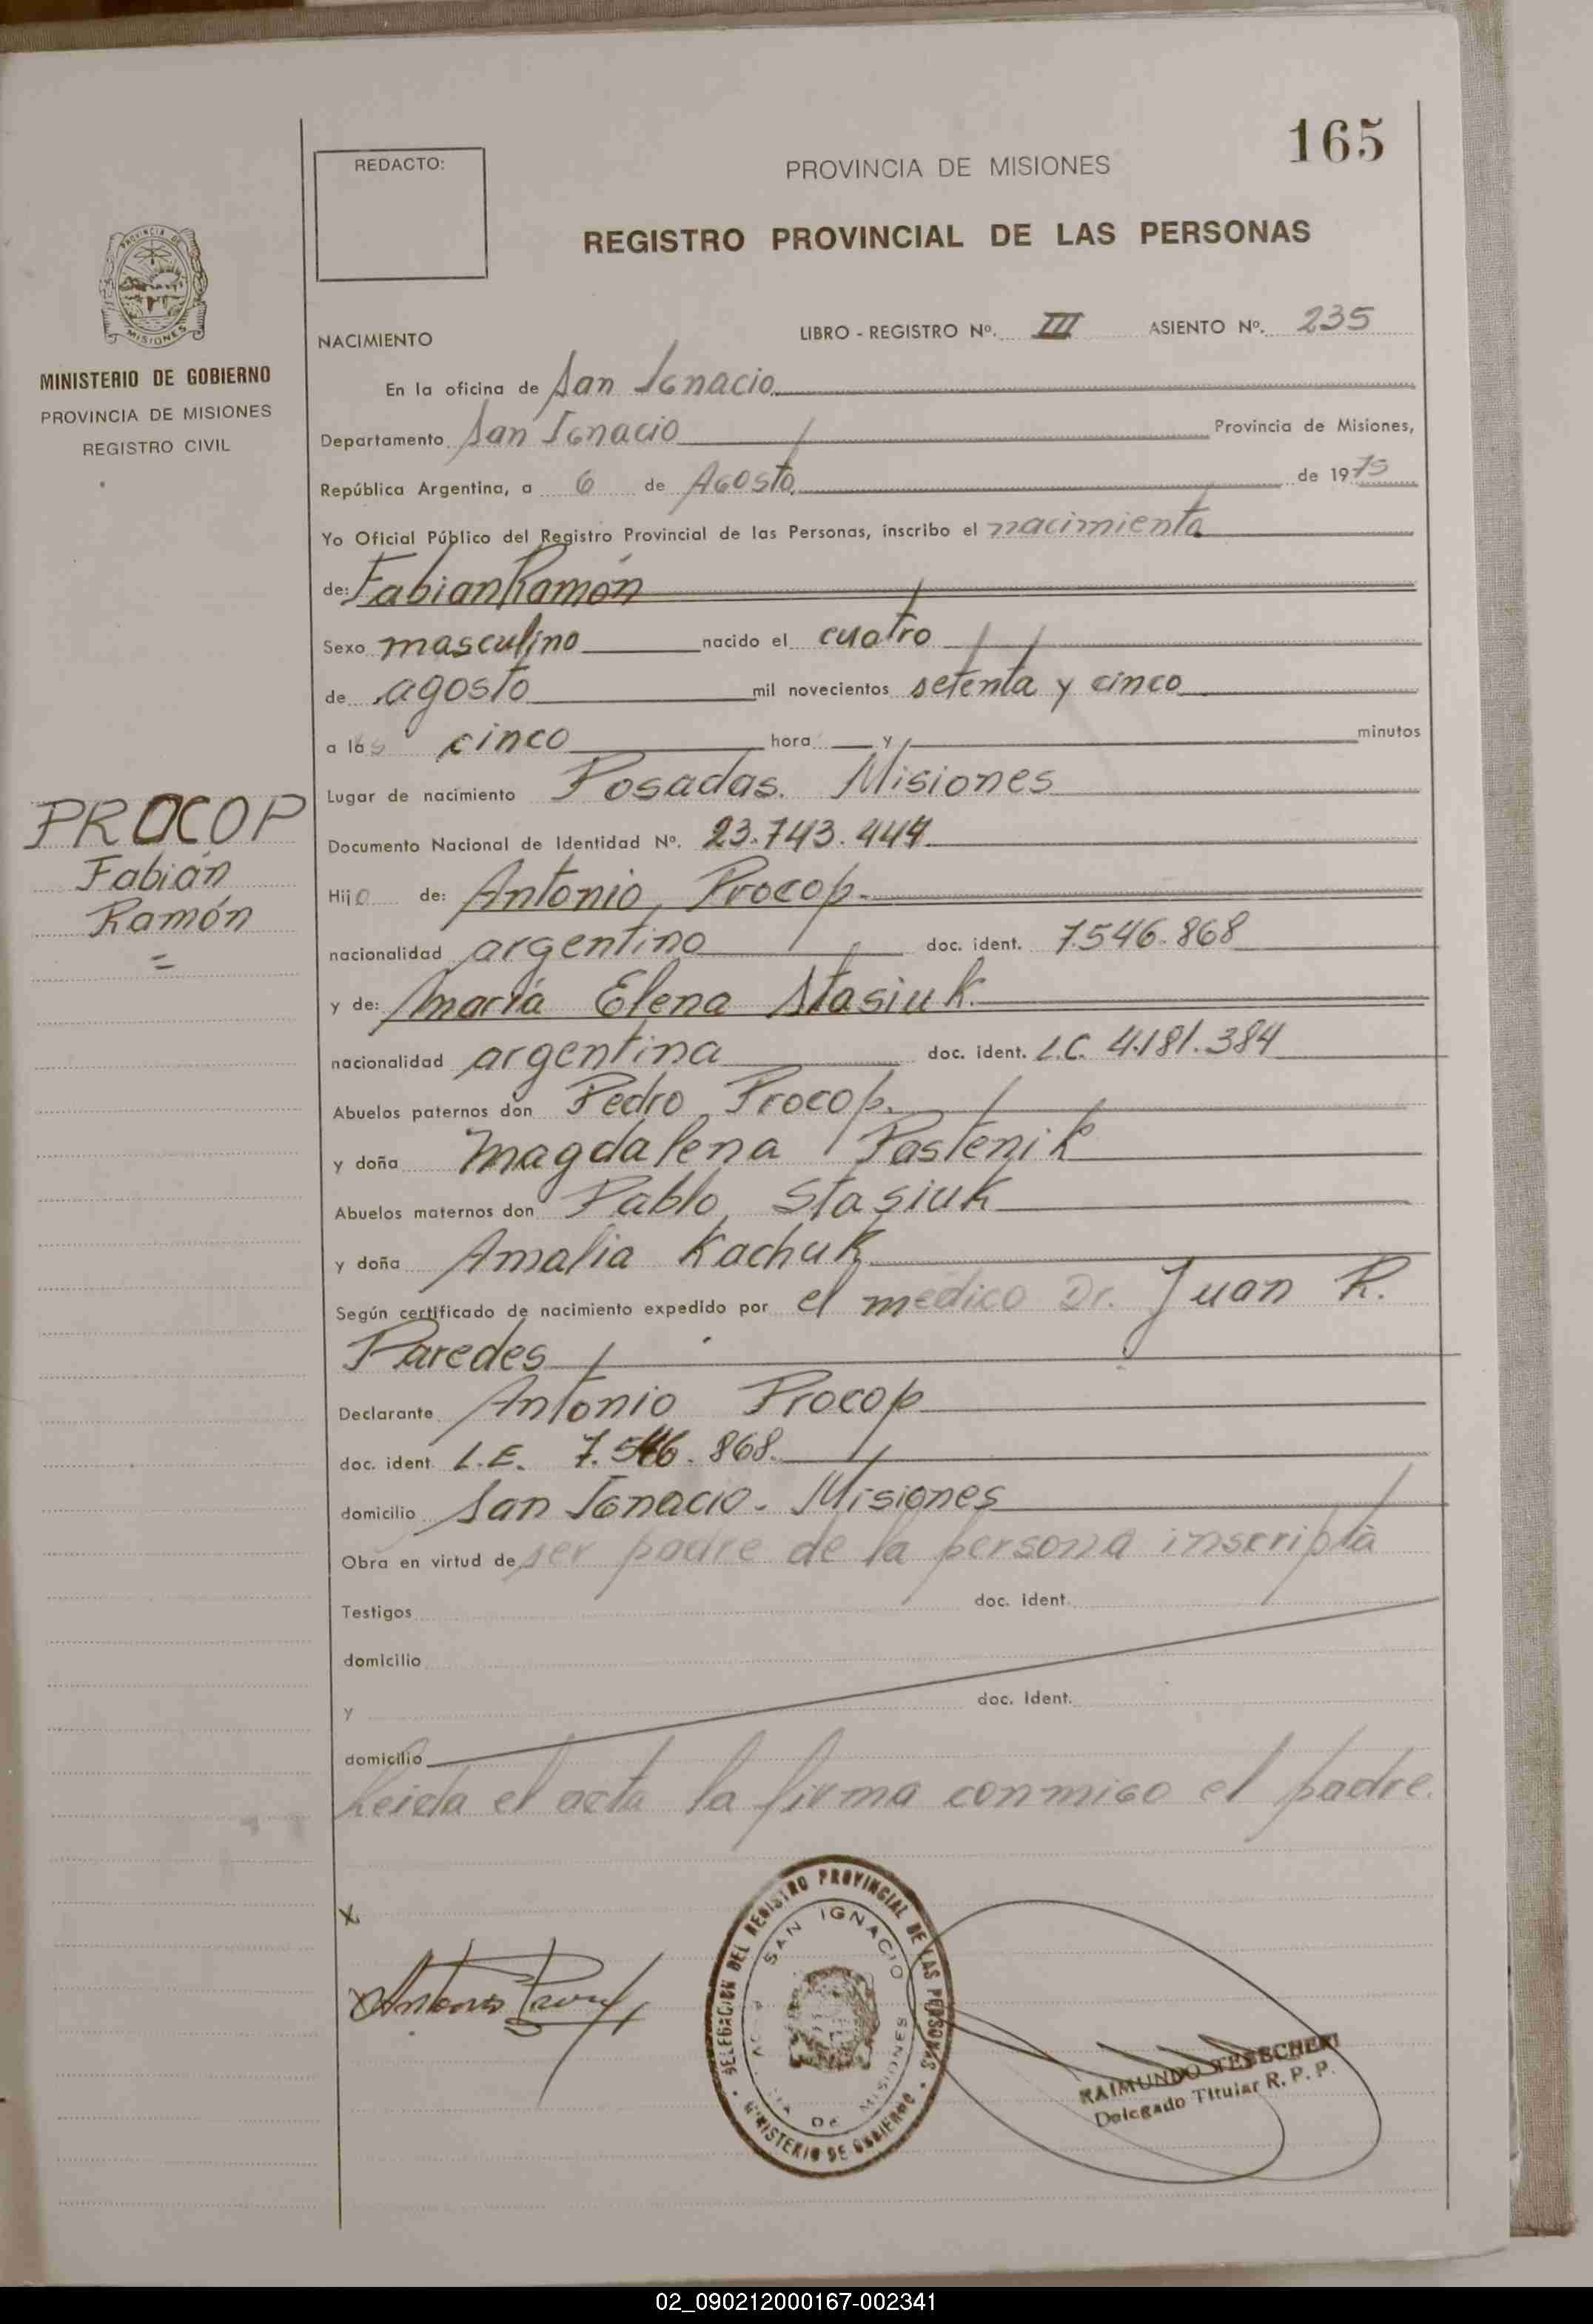 165
REDACTO:
PROVINCIA DE MISIONES
REGISTRO PROVINCIAL DE LAS PERSONAS
PROVINCIA DE
MISIONES
MINISTERIO DE GOBIERNO
PROVINCIA DE MISIONES
REGISTRO CIVIL
NACIMIENTO LIBRO - REGISTRO Nº. III ASIENTO Nº. 235
En la oficina de San Ignacio
Departamento San Ignacio Provincia de Misiones,
República Argentina, a 6 de Agosto de 1975
Yo Oficial Público del Registro Provincial de las Personas, inscribo el nacimiento
de: Fabian Ramón
Sexo masculino nacido el cuatro
de agosto mil novecientos setenta y cinco
a las cinco hora y minutos
Lugar de nacimiento Posadas. Misiones
PROCOP
Fabián
Ramón
=
Documento Nacional de Identidad Nº. 23.743.444
Hijo de: Antonio Procop
nacionalidad argentino doc. ident. 7.546.868
y de: María Elena Stasiuk.
nacionalidad argentina doc. ident. L.C. 4.181.384
Abuelos paternos don Pedro Procop.
y doña Magdalena Pastenik
Abuelos maternos don Pablo Stasiuk
y doña Amalia Kachuk
Según certificado de nacimiento expedido por el medico Dr. Juan R.
Paredes
Declarante Antonio Procop
doc. ident. L.E. 7.546.868.
domicilio San Ignacio. Misiones
Obra en virtud de ser padre de la persona inscripta
Testigos doc. ident.
domicilio
y doc. Ident.
domicilio
Leida el acta la firma conmigo el padre.
x
DELEGACION DEL REGISTRO PROVINCIAL DE LAS PERSONAS
SAN IGNACIO
DE MISIONES
MINISTERIO DE GOBIERNO
RAIMUNDO
Delegado Titular R. P. P.
02_090212000167-002341